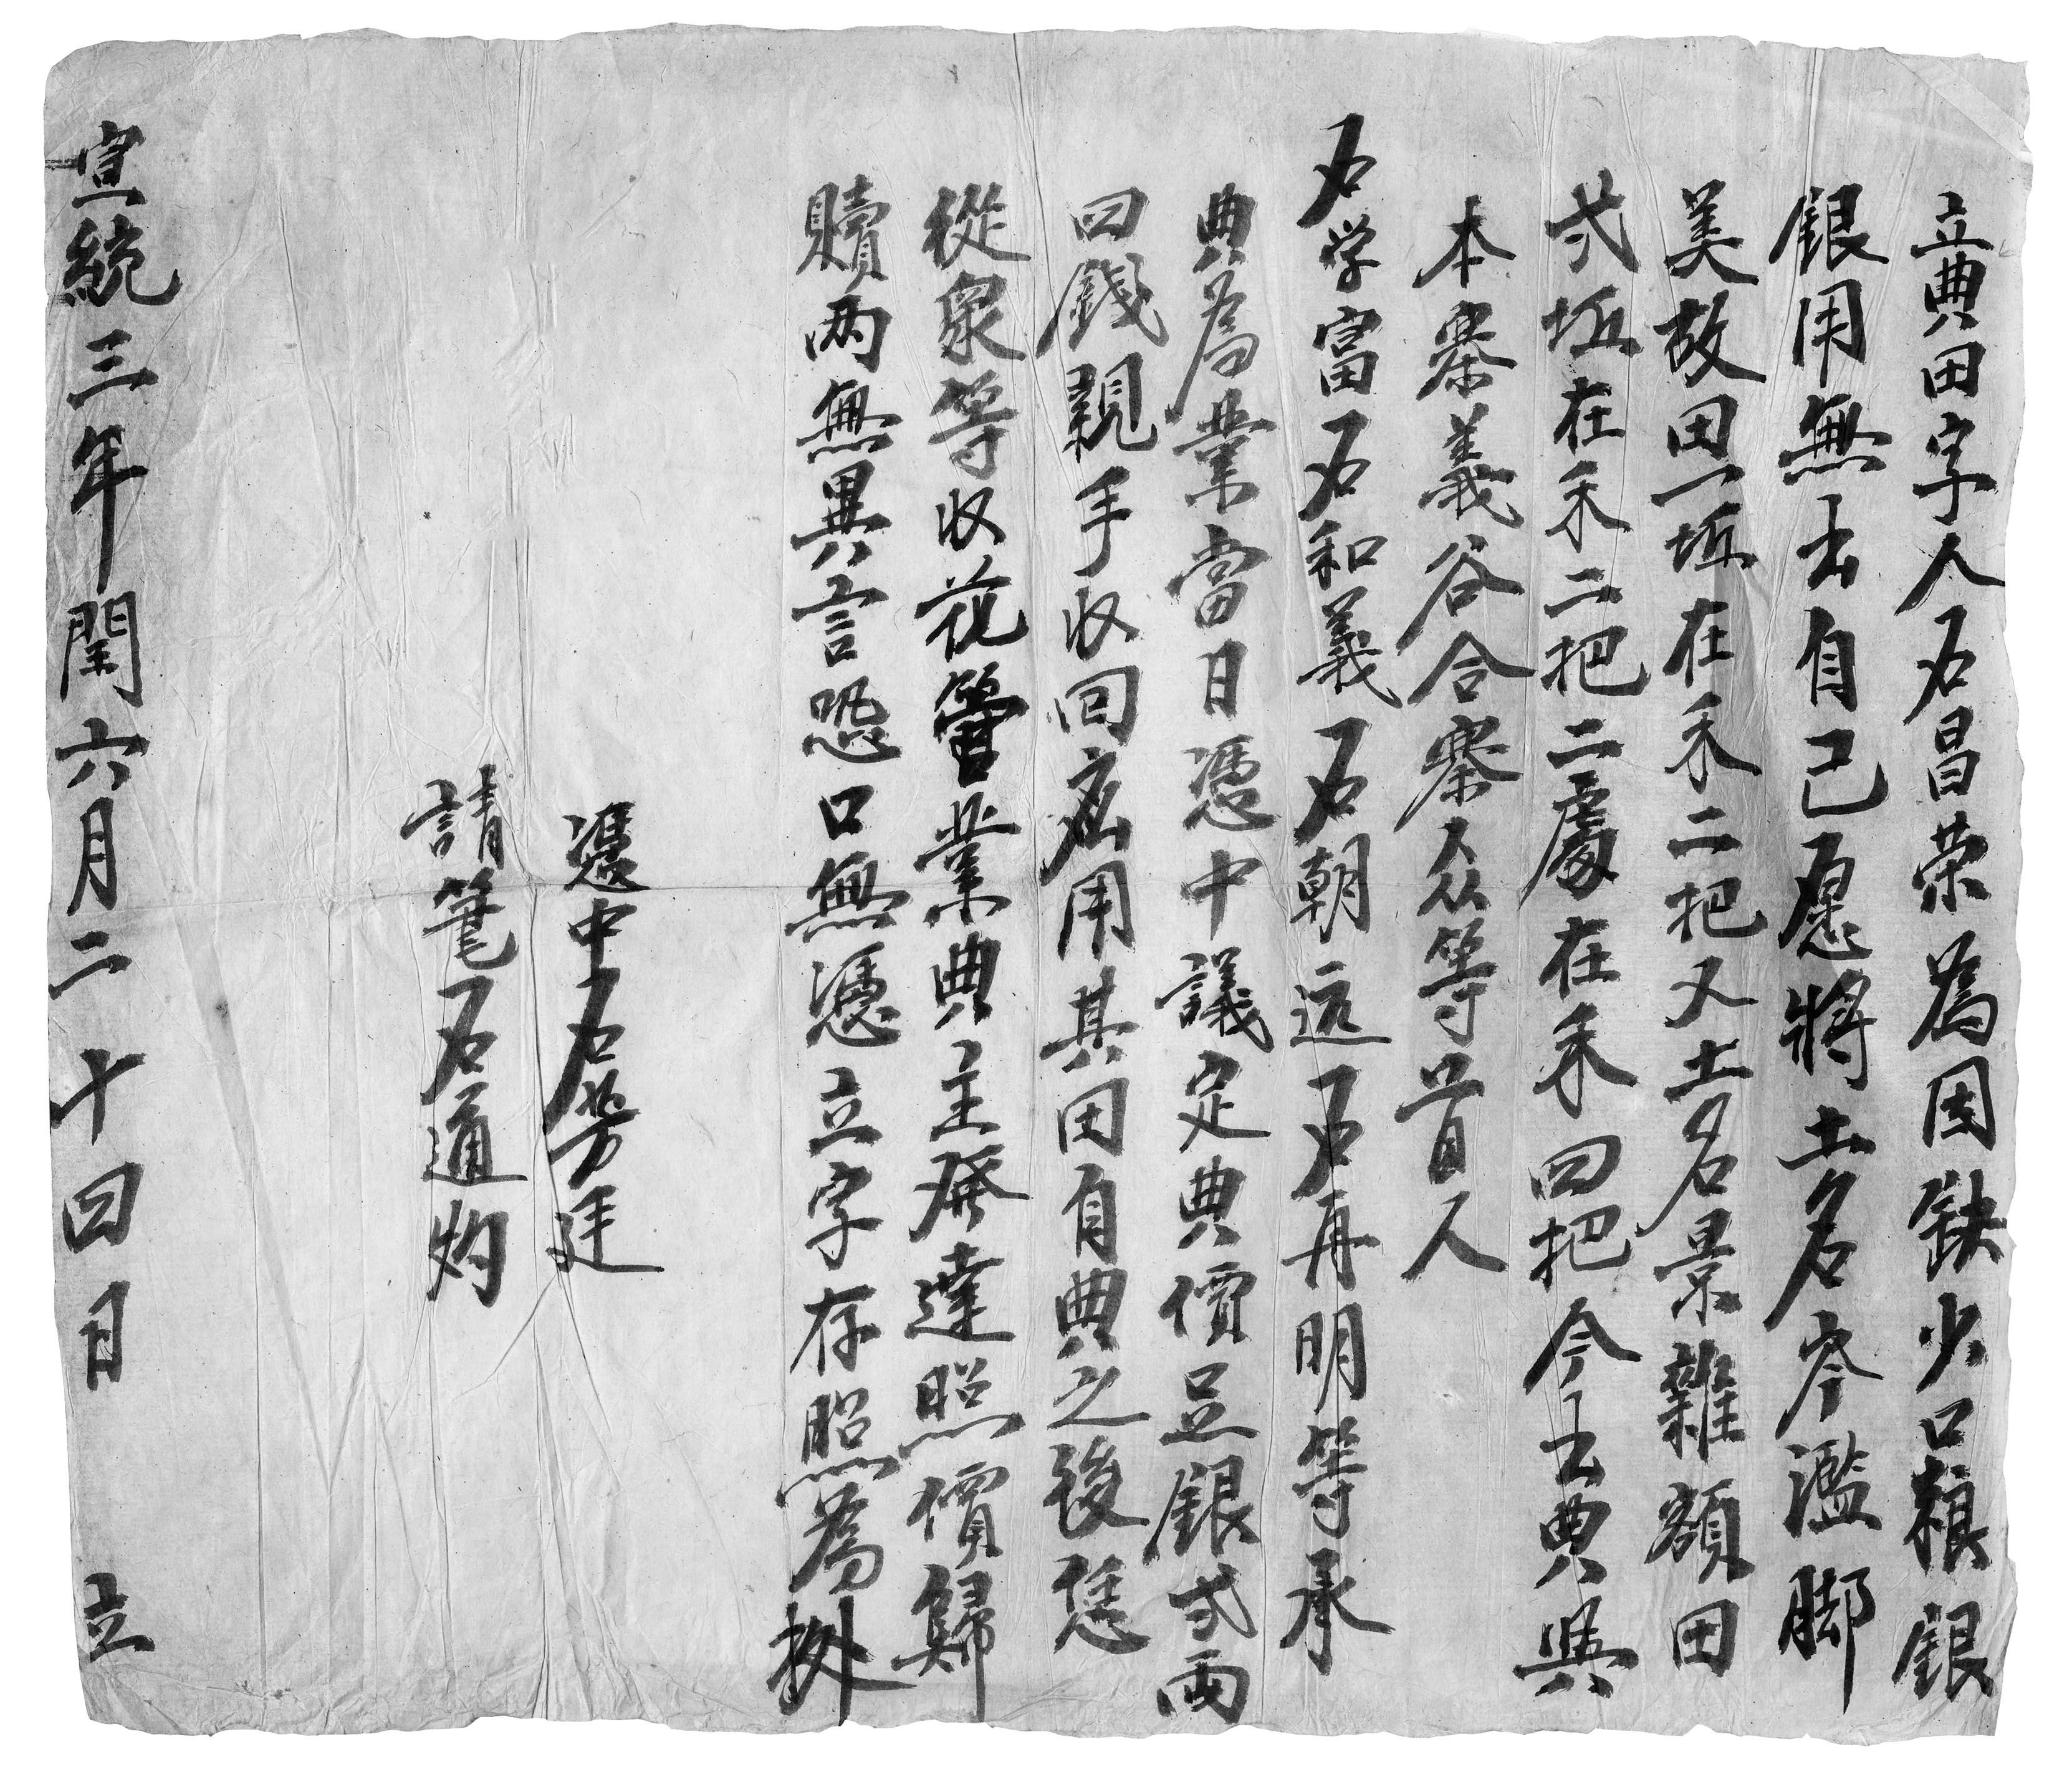 立典田字人石昌荣為因缺少口粮銀
銀用無出自己愿將土名岑濫脚
美故田一坵在禾二把又土名景難額田
弍坵在禾二把二處在禾四把今出典與
本寨義谷合寨人众等首人
石学富石和義石朝远石再明等承
典為業當日憑中議定典價足銀弍両
四錢親手収回应用其田自典之後恁
從衆等收花管業典主發達照價歸
贖両無異言恐口無憑立字存照為挶
憑中石芳廷
請筆石通灼
宣統三年閏六月二十四日 立